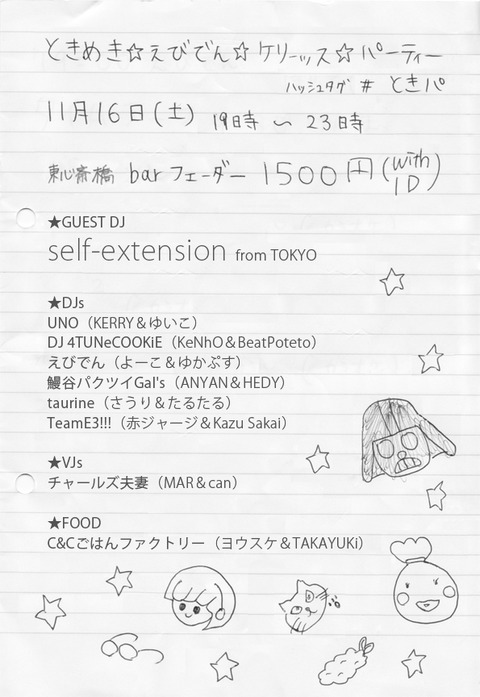 ときめき☆えびでん☆ケリーッス☆パーティー
ハッシュタグ # ときパ
11月16日(土) 19時〜23時
東心斎橋 bar フェーダー 1500円(with 1D)
★GUEST DJ
self-extension from TOKYO
★DJs
UNO（KERRY＆ゆいこ）
DJ 4TUNeCOOKiE（KeNhO＆BeatPoteto）
えびでん（よーこ＆ゆかぷす）
鰻谷パクツイGal's（ANYAN＆HEDY）
taurine（さうり＆たるたる）
TeamE3!!!（赤ジャージ＆Kazu Sakai）
★VJs
チャールズ夫妻（MAR＆can）
★FOOD
C&Cごはんファクトリー（ヨウスケ＆TAKAYUKi）